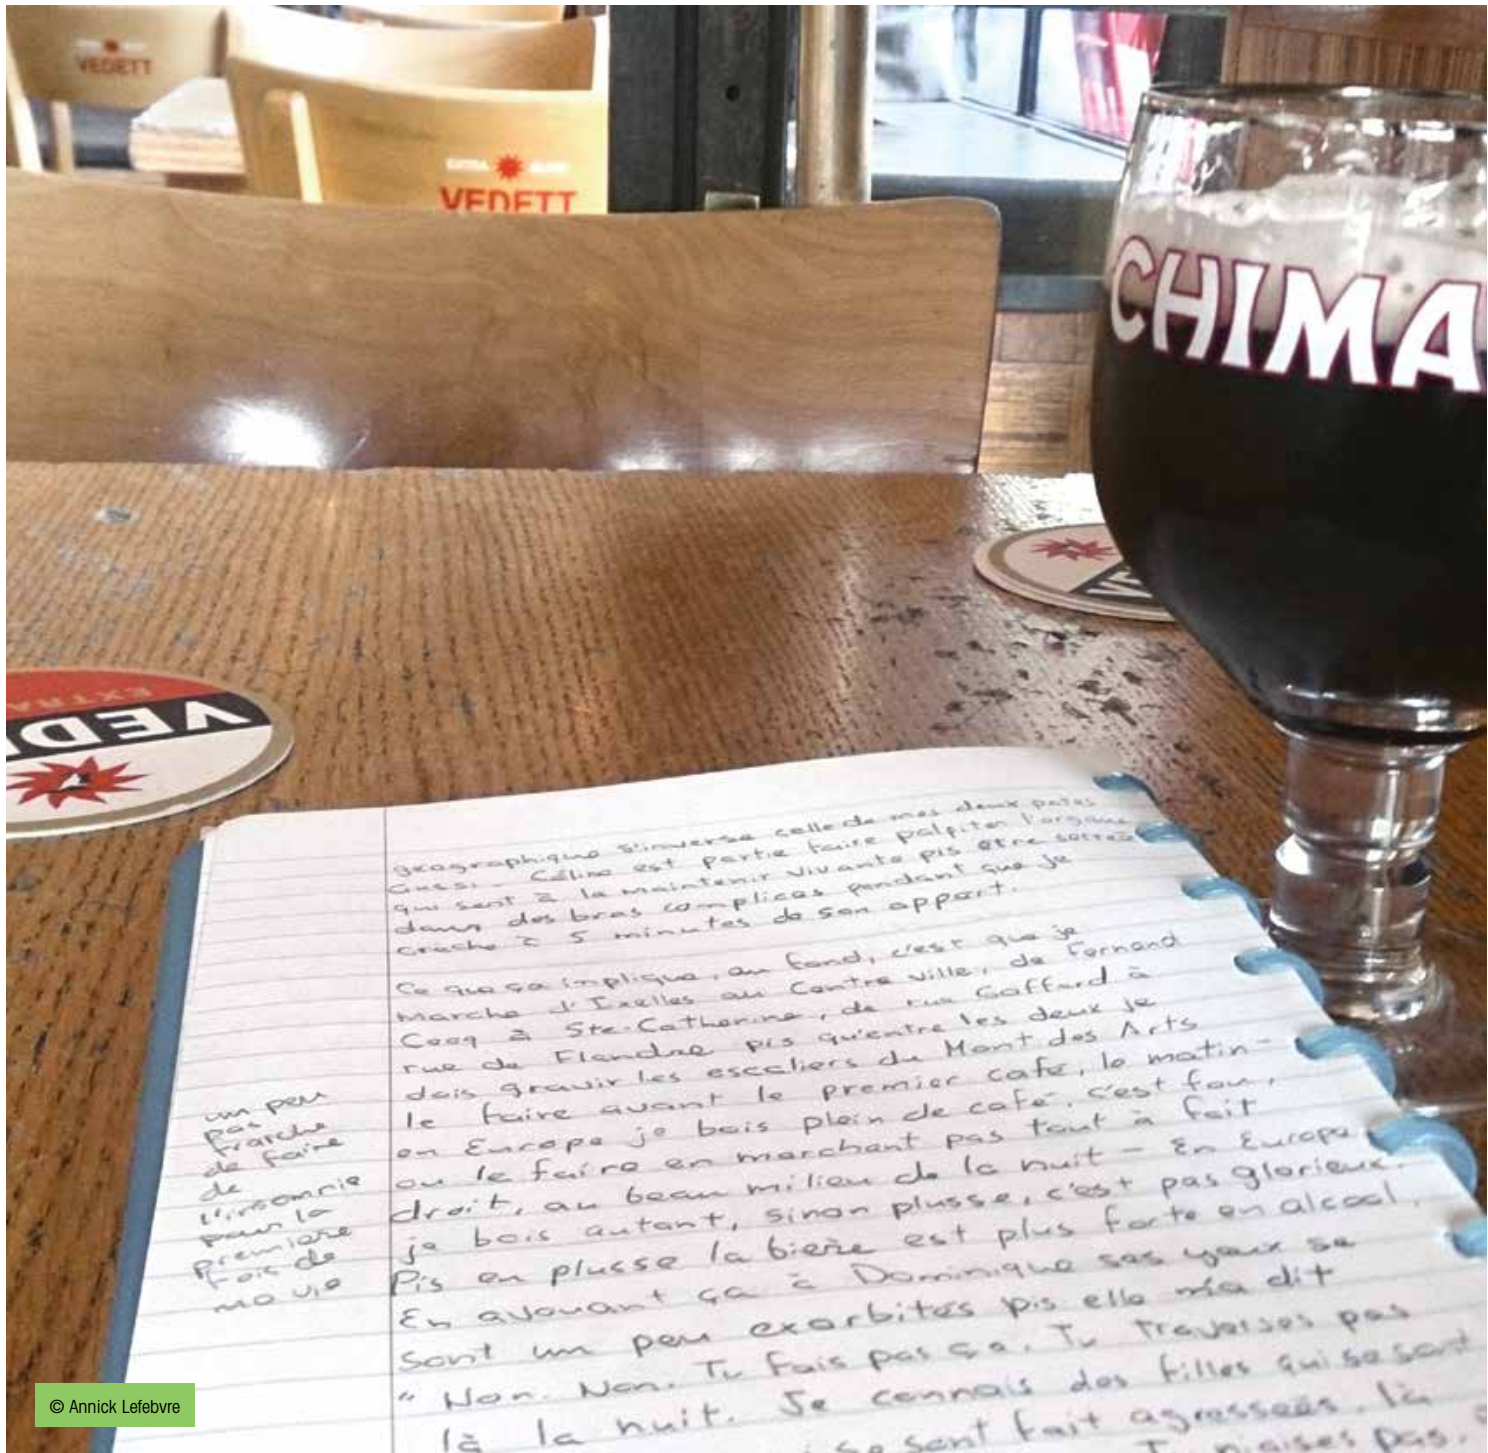 VEDETT
EXTRA
VEDETT
CHIMA
VE
EXTRA
VED
géographique s'inverse celle de mes deux potes
aussi. Céline est partie faire palpiter l'organe
qui sert à la maintenir vivante pis être serrée
dans des bras complices pendant que je
crèche à 5 minutes de son appart.
Ce que ça implique, au fond, c'est que je
marche d'Ixelles au Centre ville, de Fernand
Cocq à Ste-Catherine, de rue Gaffard à
rue de Flandre pis qu'entre les deux je
dois gravir les escaliers du Mont des Arts
le faire avant le premier café, le matin -
en Europe je bois plein de café, c'est fou,
ou le faire en marchant pas tout à fait
droit, au beau milieu de la nuit - En Europe
je bois autant, sinon plusse, c'est pas glorieux.
Pis en plusse la bière est plus forte en alcool.
En avouant ça à Dominique ses yeux se
sont un peu exorbités pis elle m'a dit
" Non. Non. Tu fais pas ça. Tu traverses pas
là la nuit. Je connais des filles qui se sont
se sont fait agressées, là
niaises pas.
un peu
pas
fraîche
de faire
de
l'insomnie
pour la
première
fois de
ma vie
© Annick Lefebvre